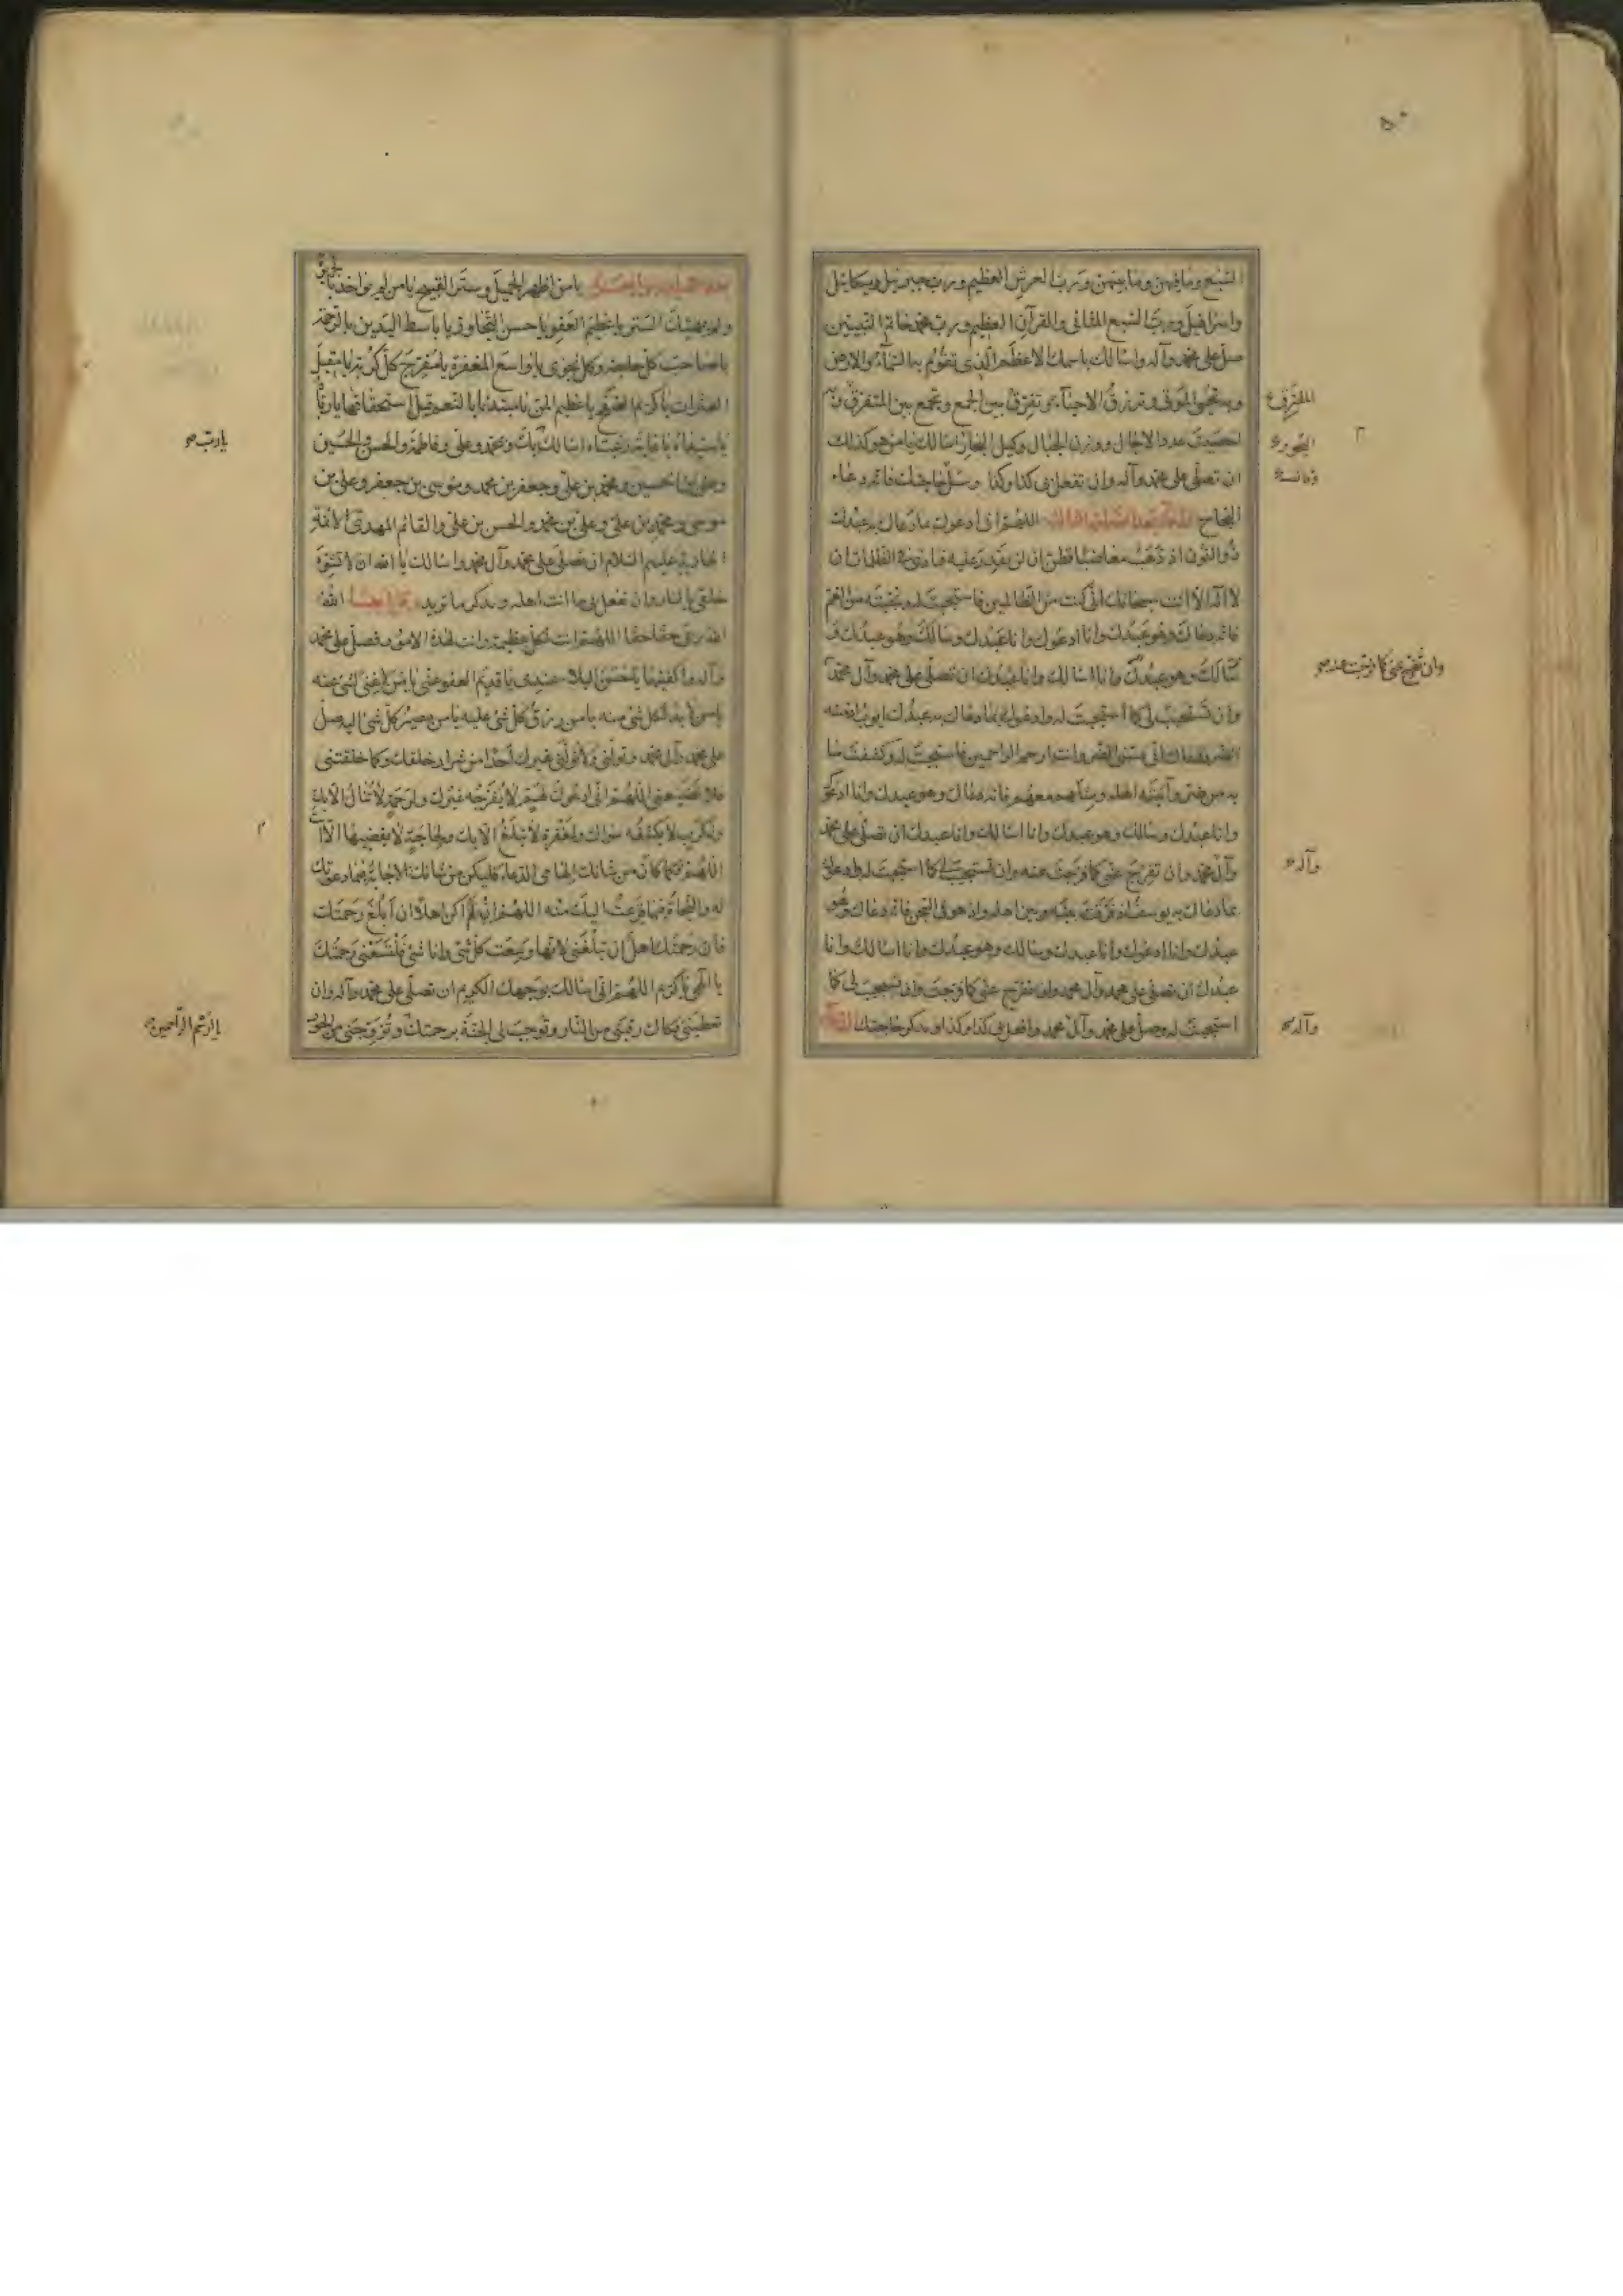 ٥٠
السبع وما فيهن وما بينهن ورب العرش العظيم ورب جبرئيل وميكائيل
واسرافيل ورب السبع المثاني والقرآن العظيم ورب محمد خاتم النبيين
صل على محمد وآله واسالك باسمك الاعظم الذي تقوم به السماء والارض
وبه تحيى الموتى وترزق الاحياء وتفرق بين الجمع وتجمع بين المتفرق وبه
احصيت عدد الاجال ووزن الجبال وكيل البحار اسالك يا من هو كذلك
ان تصلى على محمد وآله وان تفعل بى كذا وكذا وسل حاجتك فانه دعاء
النجاح اللهم انى ادعوك بما دعاك به عبدك
ذو النون اذ ذهب مغاضبا فظن ان لن نقدر عليه فنادى فى الظلمات ان
لا اله الا انت سبحانك انى كنت من الظالمين فاستجبت له ونجيته من الغم
فانه دعاك وهو عبدك وانا ادعوك وانا عبدك وسالك وهو عبدك و
سالك وهو عبدك وانا اسالك وانا عبدك ان تصلى على محمد وآل محمد
وان تستجيب لى كما استجبت له وادعوك بما دعاك به عبدك ايوب اذ مسه
الضر فقال انى مسنى الضر وانت ارحم الراحمين فاستجبت له وكشفت ما
به من ضر وآتيته اهله ومثلهم معهم فانه دعاك وهو عبدك وانا ادعوك
وانا عبدك وسالك وهو عبدك وانا اسالك وانا عبدك ان تصلى على محمد
وآل محمد وان تفرج عنى كما فرجت عنه وان تستجيب لى كما استجبت له وادعوك
بما دعاك به يوسف اذ فرقت بينه وبين اهله واذ هو فى السجن فانه دعاك وهو
عبدك وانا ادعوك وانا عبدك وسالك وهو عبدك وانا اسالك وانا
عبدك ان تصلى على محمد وآل محمد وان تفرج عنى كما فرجت وان تستجيب لى كما
استجبت له وصل على محمد وآل محمد وافعل بى كذا وكذا وتذكر حاجتك
المتفرق
وان تفرج عنى كما فرجت عنه
وآله
وآله
يا من اظهر الجميل وستر القبيح يا من لم يؤاخذ بالجريرة
ولم يهتك الستر يا عظيم العفو يا حسن التجاوز يا باسط اليدين بالرحمة
يا صاحب كل حاجة وكل نجوى يا واسع المغفرة يا مفرج كل كربة يا مقيل
العثرات يا كريم الصفح يا عظيم المن يا مبتدئا بالنعم قبل استحقاقها يا رباه
يا سيداه يا غاية رغبتاه اسالك بك وبمحمد وعلى وفاطمة والحسن والحسين
وعلى بن الحسين ومحمد بن على وجعفر بن محمد وموسى بن جعفر وعلى بن
موسى ومحمد بن على وعلى بن محمد والحسن بن على والقائم المهدى الائمة
الهادية عليهم السلام ان تصلى على محمد وآل محمد واسالك يا الله ان لا تشوه
خلقى بالنار وان تفعل بى ما انت اهله وتذكر ما تريد الله
الله ربى حقا حقا اللهم انت لكل عظيمة وانت لهذه الامور فصل على محمد
وآله واكفنيها يا حسن البلاء عندى يا قديم العفو عنى يا من لا غنى لشئ عنه
يا من لا بد لكل شئ منه يا من رزق كل شئ عليه يا من مصير كل شئ اليه صل
على محمد وآل محمد وتولنى ولا تولنى غيرك احدا من شرار خلقك وكما خلقتنى
فلا تضيعنى اللهم انى ادعوك لهم لا يفرجه غيرك ولرحمة لا تنال الا بك
ولكرب لا يكشفه سواك ولمغفرة لا تبلغ الا بك ولحاجة لا يقضيها الا انت
اللهم فكما كان من شانك الهامى الدعاء فليكن من شانك الاجابة فيما دعوتك
له والنجاة فيما فزعت اليك منه اللهم ان لم اكن اهلا ان ابلغ رحمتك
فان رحمتك اهل ان تبلغنى لانها وسعت كل شئ وانا شئ فلتسعنى رحمتك
يا الهى يا كريم اللهم انى اسالك بوجهك الكريم ان تصلى على محمد وآله وان
تعطينى فكاك رقبتى من النار وتوجب لى الجنة برحمتك وتزوجنى من الحور
يا رب
يا ارحم الراحمين